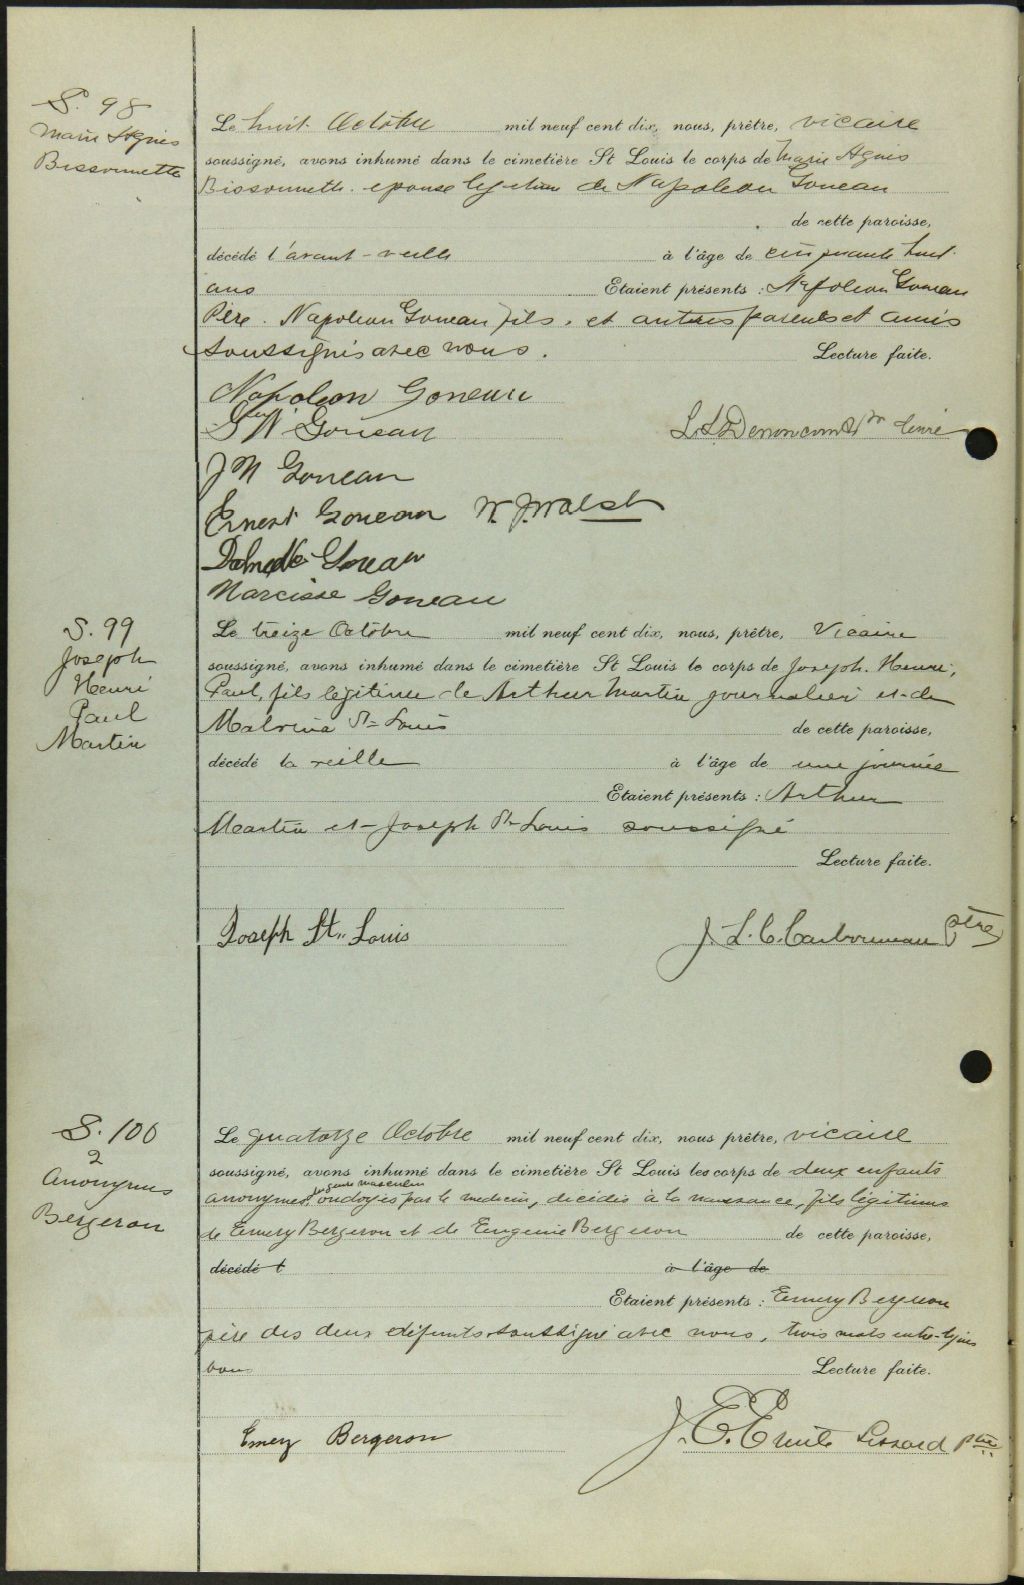 S. 98
Marie Agnes
Bissonnette
Le huit Octobre mil neuf cent dix, nous, prêtre, vicaire
soussigné, avons inhumé dans le cimetière St Louis le corps de Marie Agnes
Bissonnette. epouse legitime de Napoleon Goneau
de cette paroisse,
décédé l'avant-veille à l'âge de cinquante huit
ans Etaient présents : Napoleon Goneau
Père. Napoleon Goneau fils. et autres parents et amis
soussignés avec nous. Lecture faite.
Napoleon Goneau
N Goneau
L. Denoncourt Ptre Curé
J N Goneau
Ernest Goneau W. J. Walsh
Goneau
Narcisse Goneau
S. 99
Joseph
Henri
Paul
Martin
Le treize Octobre mil neuf cent dix, nous, prêtre, Vicaire
soussigné, avons inhumé dans le cimetière St Louis le corps de Joseph. Henri,
Paul, fils légitime de Arthur Martin journalier et de
Malvina St-Louis de cette paroisse,
décédé la veille à l'âge de une journée
Etaient présents : Arthur
Martin et Joseph St-Louis soussigné
Lecture faite.
Joseph St. Louis
J. L. C. Carbonneau ptre
S. 100
2
Anonymes
Bergeron
Le quatorze Octobre mil neuf cent dix, nous prêtre, vicaire
soussigné, avons inhumé dans le cimetière St Louis les corps de deux enfants
du genre masculin
anonymes, ondoyés par le medecin, décédés à la naissance, fils légitimes
de Emery Bergeron et de Eugenie Bergeron de cette paroisse,
décédé l à l'âge de
Etaient présents : Emery Bergeron
père des deux défunts soussigné avec nous, trois mots entre-lignes
bon Lecture faite.
Emery Bergeron
J. E. Emile Lessard ptre